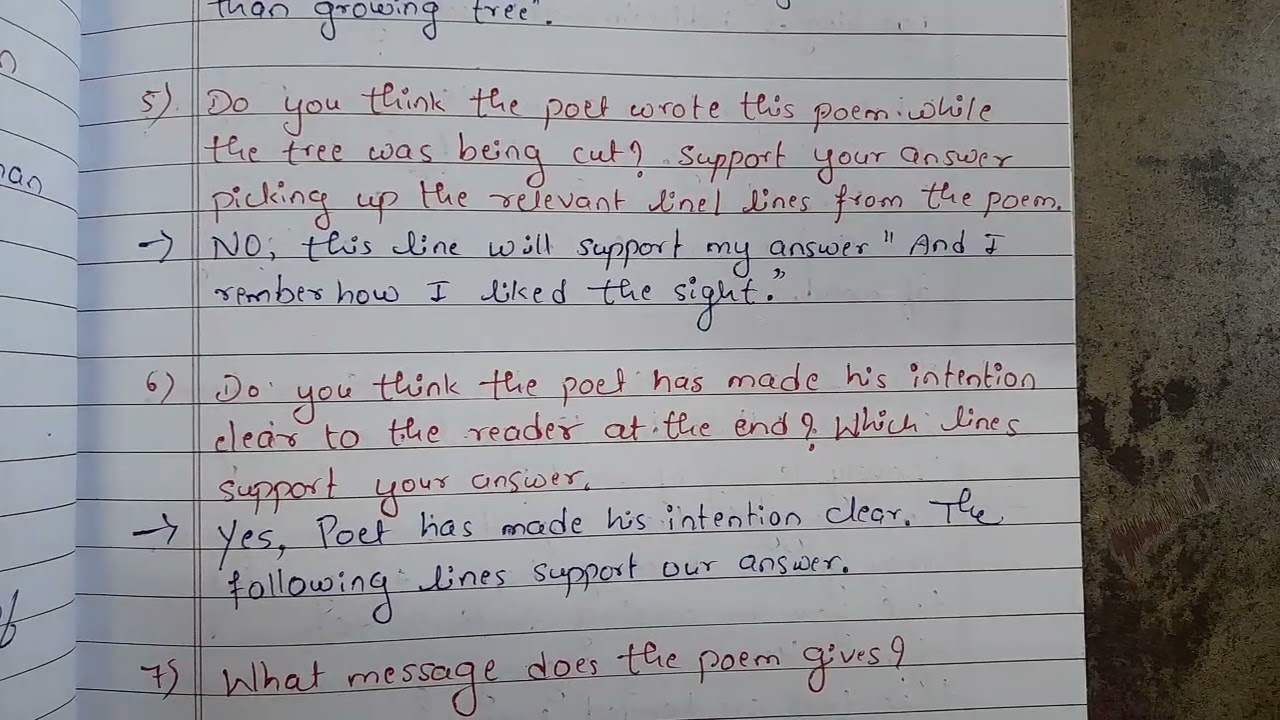 than growing tree".
n
5) Do you think the poet wrote this poem while
the tree was being cut? Support your answer
nan
picking up the relevant line/ lines from the poem.
→ NO, this line will support my answer " And I
rember how I liked the sight."
6) Do you think the poet has made his intention
clear to the reader at the end? Which lines
support your answer.
→ Yes, Poet has made his intention clear. The
following lines support our answer.
7) What message does the poem gives?